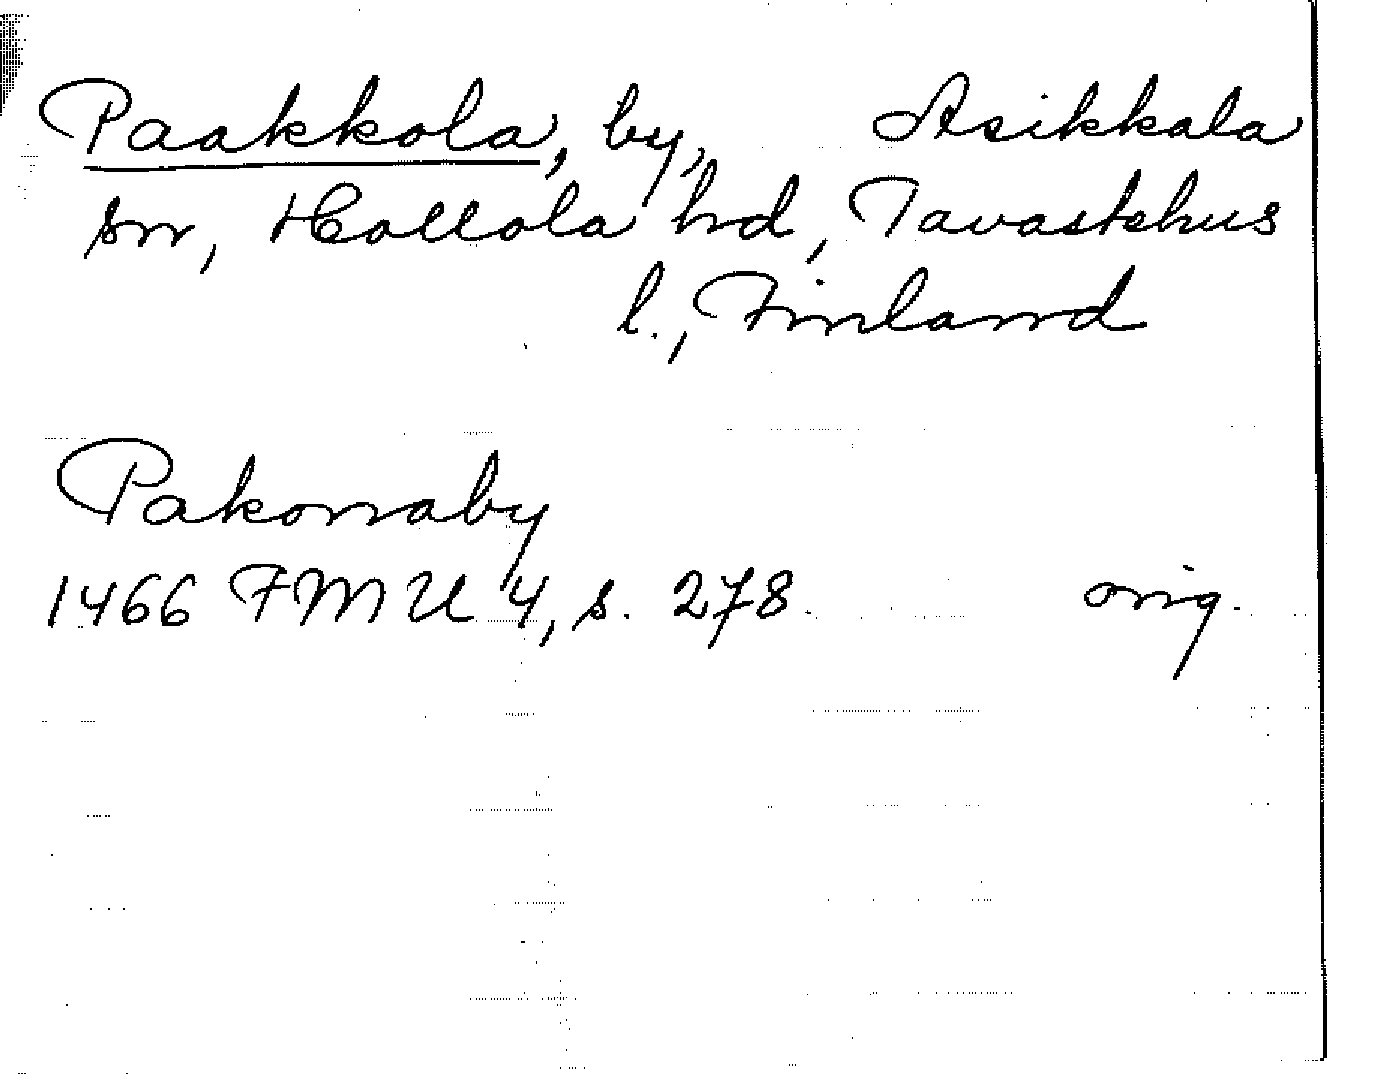 Paakkola, by, Asikkala
sn, Hollola hd, Tavastehus
l., Finland
Pakonaby
1466 FMU 4, s. 278. orig.